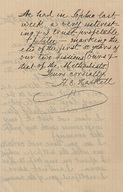 We had in Sophia last
week a very interest-
ing & I trust profitable
Jubilee — marking the
close of the first 50 years of
our two missions (ours &
that of the Methodists).
Yours cordially,
H. C. Haskell